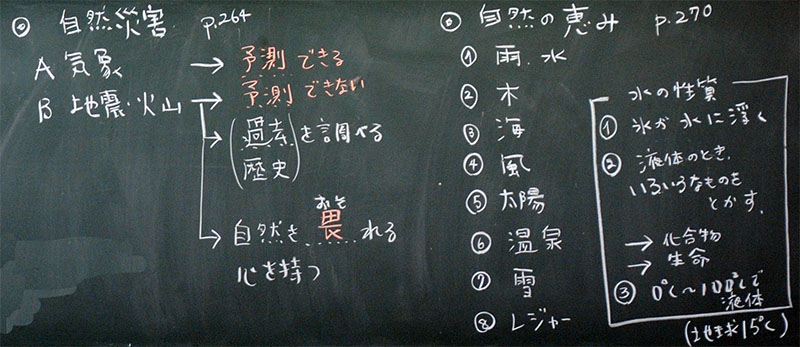 ◎ 自然災害 p.264
A 気象 → 予測できる
B 地震・火山 → 予測できない
→ (過去 歴史) を調べる
おそ
→ 自然を畏れる
心を持つ
◎ 自然の恵み p.270
① 雨、水
② 木
③ 海
④ 風
⑤ 太陽
⑥ 温泉
⑦ 雪
⑧ レジャー
水の性質
① 氷が水に浮く
② 液体のとき、
いろいろなものを
とかす。
→ 化合物
→ 生命
③ 0℃~100℃で
液体
(地球15℃)